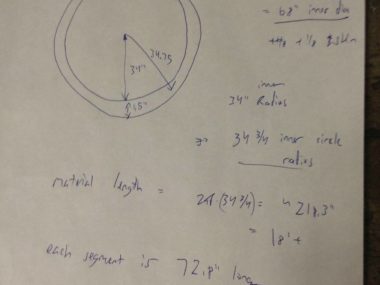 = 68" inner dia
+ 1/8
34.75
34"
1.5"
inner
34" Radius
34 3/4 inner circle
radius
material length = 2π·(34 3/4) = ~ 218.3"
= 18' +
each segment is 72.8" long